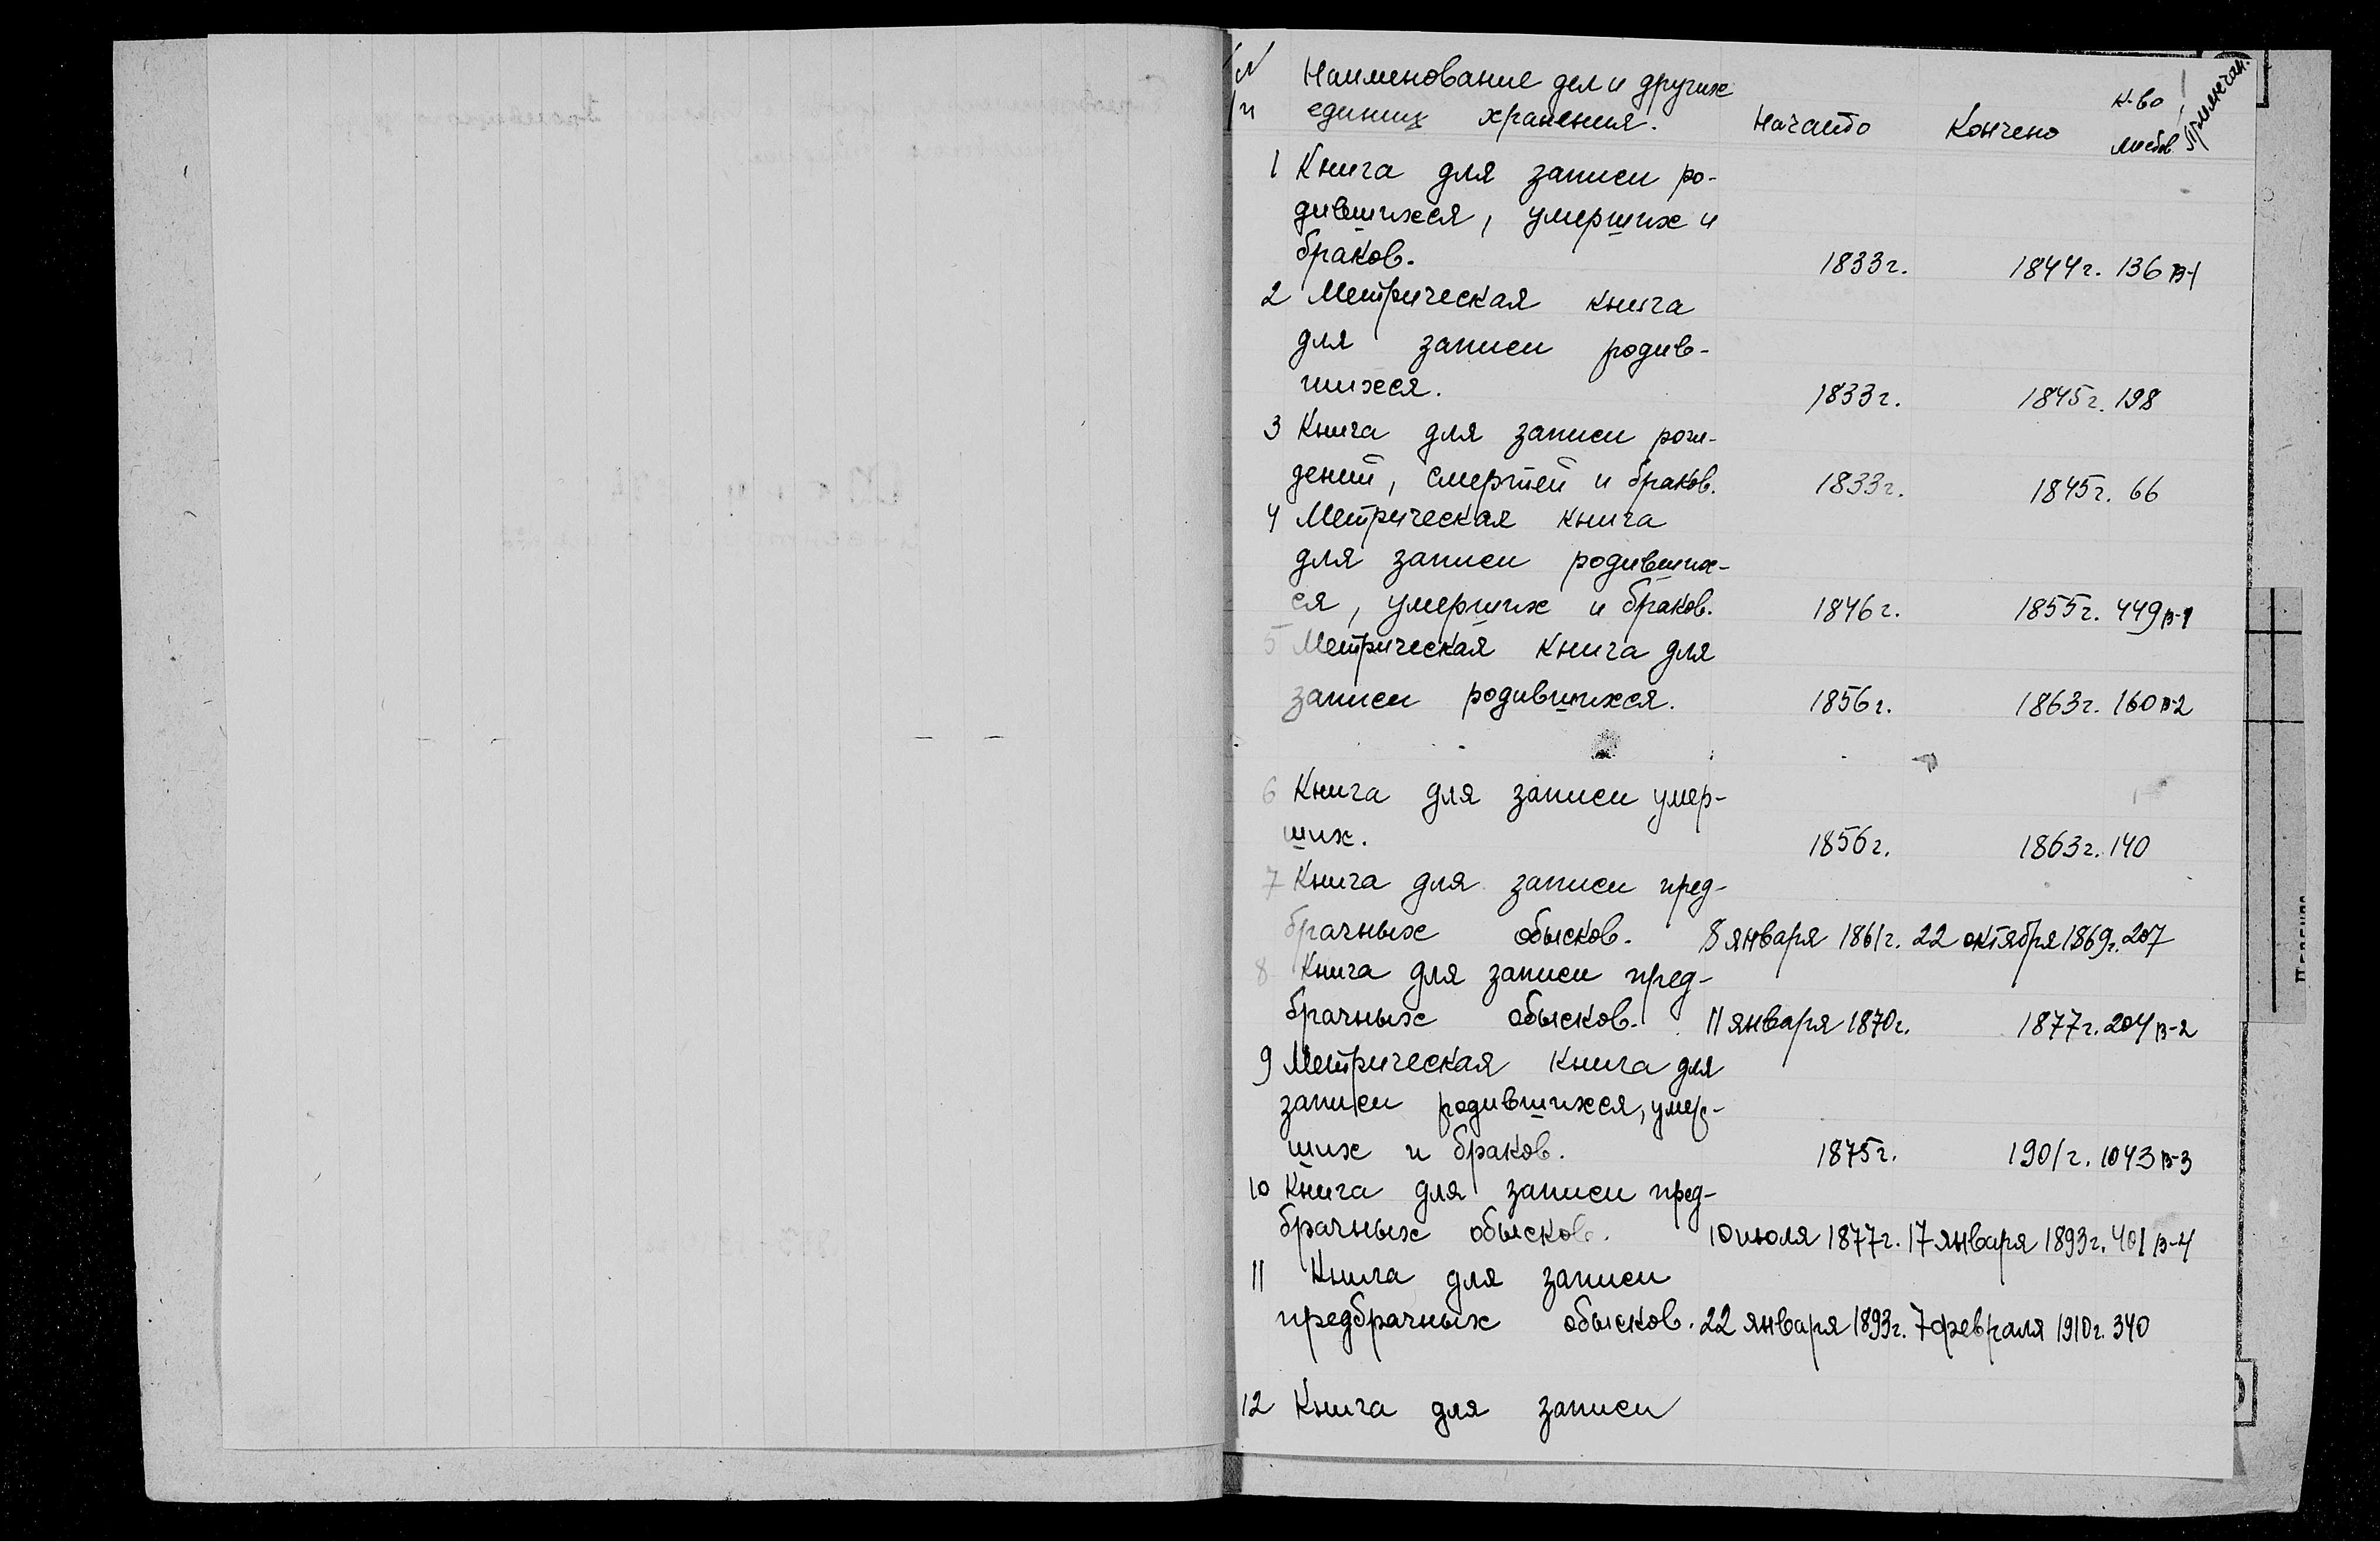 N Наименование дел и других
п единиц хранения. Начато Кончено к-во листов Примечан.
1 Книга для записи ро-
дившихся, умерших и
браков. 1833г. 1844г. 136 в-1
2 Метрическая книга
для записи родив-
шихся. 1833г. 1845г. 198
3 Книга для записи рож-
дений, смертей и браков. 1833г. 1845г. 66
4 Метрическая книга
для записи родивших-
ся, умерших и браков. 1846г. 1855г. 449 в-1
5 Метрическая книга для
записи родившихся. 1856г. 1863г. 160 в-2
6 Книга для записи умер-
ших. 1856г. 1863г. 140
7 Книга для записи пред-
брачных обысков. 8 января 1861г. 22 октября 1869г. 207
8 Книга для записи пред-
брачных обысков. 11 января 1870г. 1877г. 204 в-2
9 Метрическая книга для
записи родившихся, умер-
ших и браков. 1875г. 1901г. 1043 в-3
10 Книга для записи пред-
брачных обысков. 10 июля 1877г. 17 января 1893г. 401 в-4
11 Книга для записи
предбрачных обысков. 22 января 1893г. 7 февраля 1910г. 340
12 Книга для записи